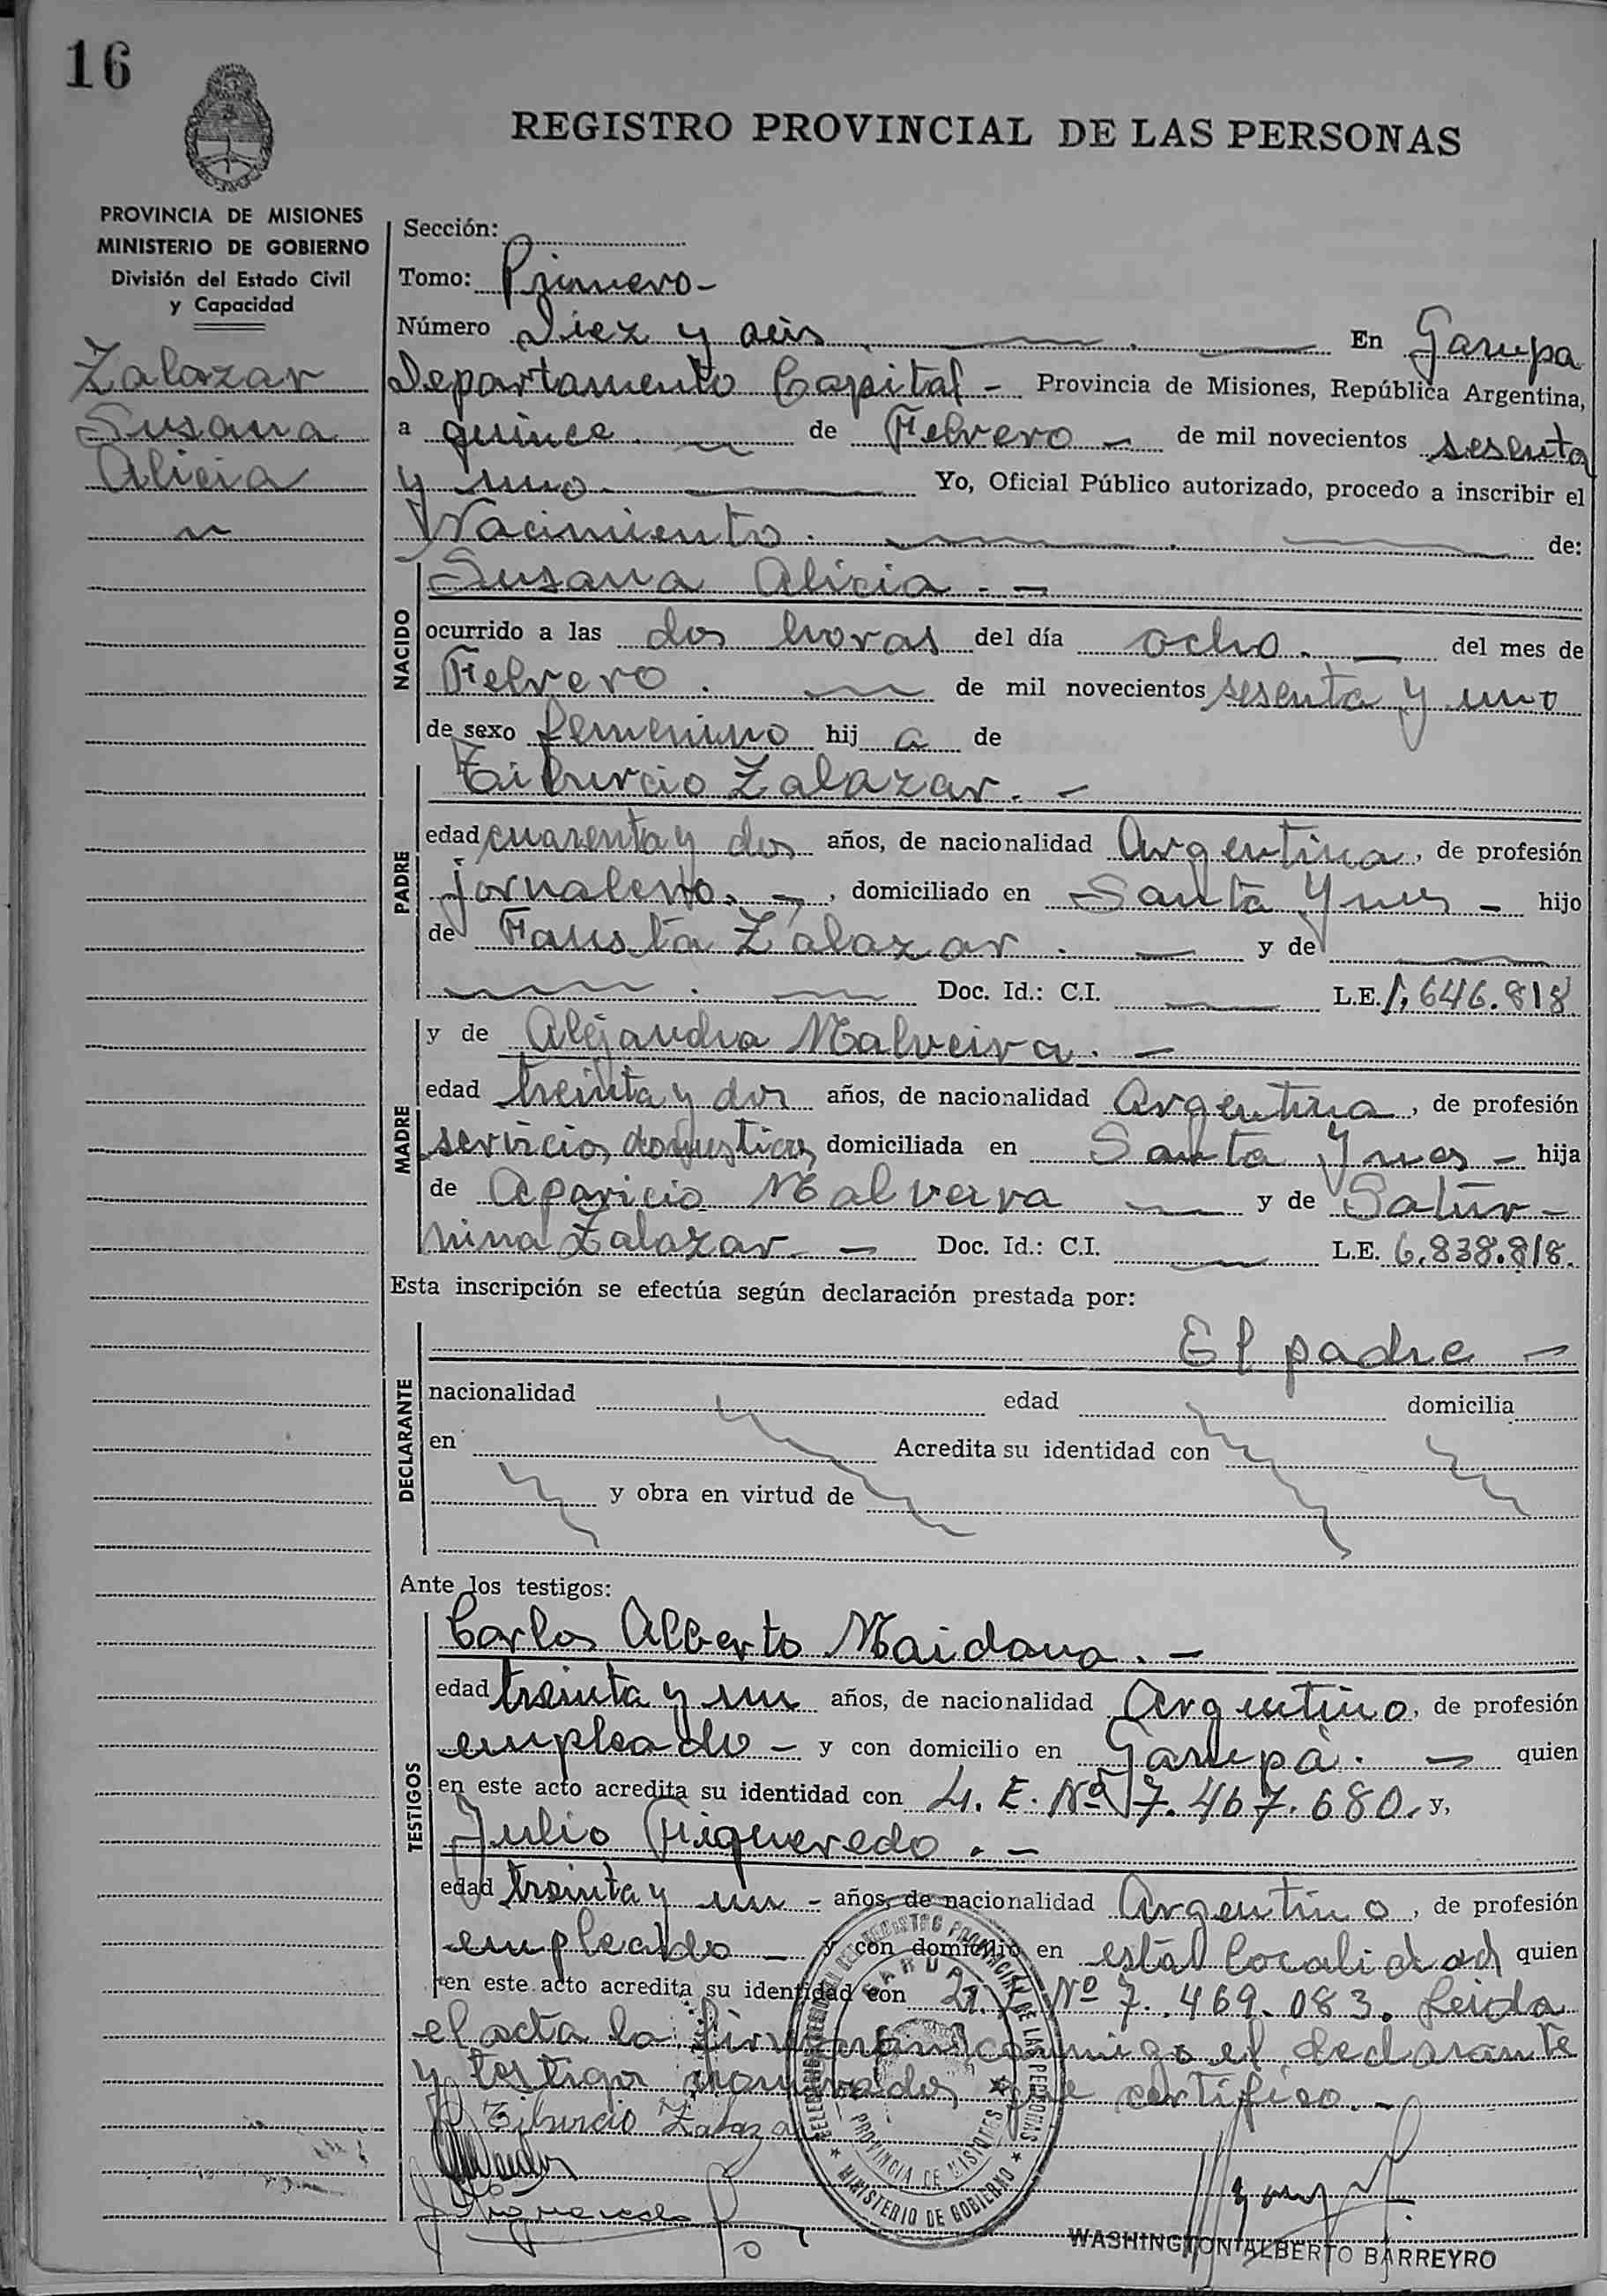 16
REGISTRO PROVINCIAL DE LAS PERSONAS
PROVINCIA DE MISIONES
MINISTERIO DE GOBIERNO
División del Estado Civil
y Capacidad
Zalazar
Susana
Alicia
Sección:
Tomo: Primero -
Número Diez y seis En Garupa
Departamento Capital - Provincia de Misiones, República Argentina,
a quince de Febrero - de mil novecientos sesenta
y uno Yo, Oficial Público autorizado, procedo a inscribir el
Nacimiento. de:
NACIDO
Susana Alicia. -
ocurrido a las dos horas del día ocho. - del mes de
Febrero. de mil novecientos sesenta y uno
de sexo femenino hij a de
PADRE
Tiburcio Zalazar. -
edad cuarenta y dos años, de nacionalidad Argentina, de profesión
jornalero. -, domiciliado en Santa Ynes - hijo
de Fausta Zalazar. - y de
Doc. Id.: C.I. L.E. 1,646.818
MADRE
y de Alejandra Malveira. -
edad treinta y dos años, de nacionalidad Argentina, de profesión
servicios domesticos domiciliada en Santa Ynes - hija
de Aparicio Malveira y de Satur-
nina Zalazar - Doc. Id.: C.I. L.E. 6.838.818.
Esta inscripción se efectúa según declaración prestada por:
DECLARANTE
El padre -
nacionalidad edad domicilia
en Acredita su identidad con
y obra en virtud de
Ante los testigos:
TESTIGOS
Carlos Alberto Maidana. -
edad treinta y un años, de nacionalidad Argentino, de profesión
empleado - y con domicilio en Garupà. - quien
en este acto acredita su identidad con L. E. Nº 7.467.680. y,
Julio Figueredo. -
edad treinta y un - años, de nacionalidad Argentino, de profesión
empleado - y con domicilio en esta localidad quien
en este acto acredita su identidad con Nº 7.469.083. Leida
el acta la firman conmigo el declarante
y testigos nombrados, que certifico. -
Tiburcio Zalaza
PROVINCIAL DE LAS PERSONAS
GARUPA
PROVINCIA DE MISIONES
MINISTERIO DE GOBIERNO
Figueredo
WASHINGTON ALBERTO BARREYRO